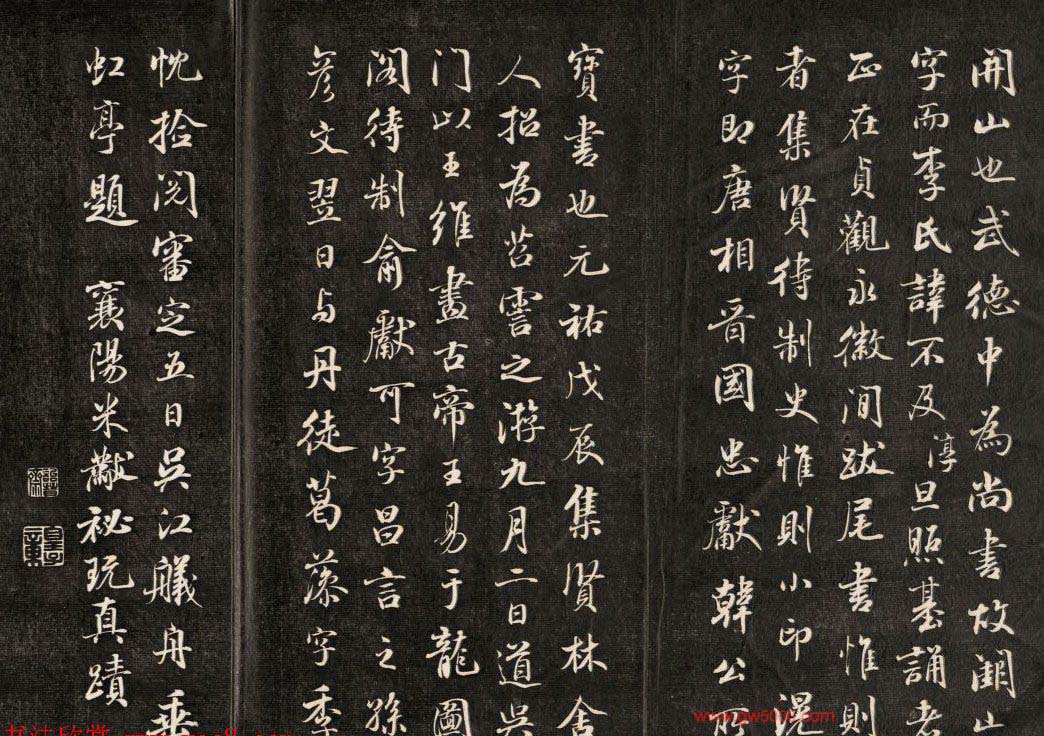 開山也武德中為尚書故開山
字而李氏諱不及淳旦照基誦者
正在貞觀永徽間跋尾書惟則
者集賢待制史惟則小印混
字即唐相晉國忠獻韓公所
寶書也元祐戊辰集賢林舍
人招為苕霅之游九月二日道吳
门以王維畫古帝王易于龍圖
閣待制俞獻可字昌言之孫
彦文翌日与丹徒葛藻字季
忱拾閱審定五日吳江艤舟垂
虹亭題 襄陽米黻祕玩真蹟